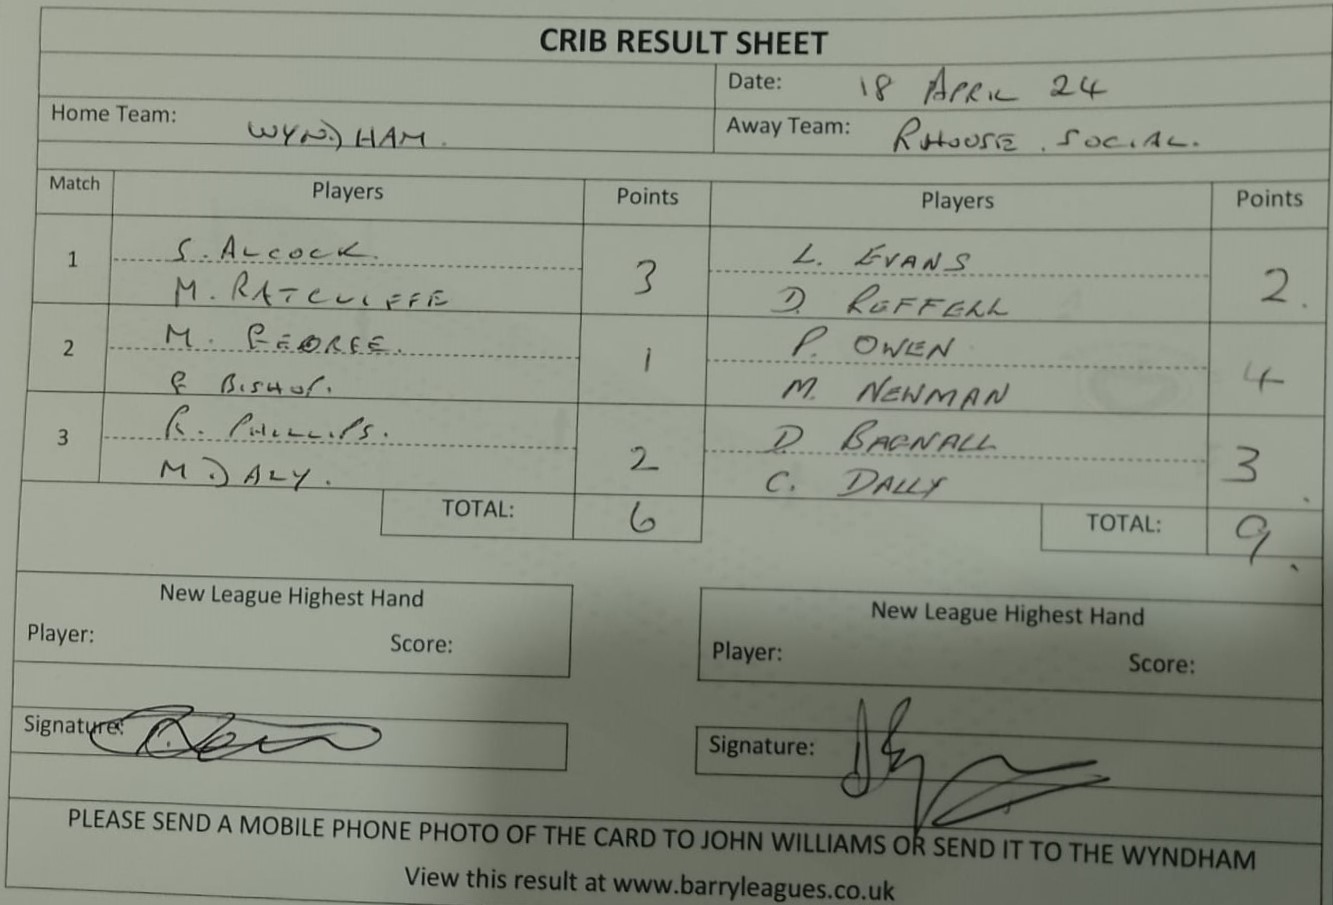 CRIB RESULT SHEET
Date: 18 APRIL 24
Home Team: WYNDHAM.
Away Team: RHOOSE. SOCIAL.
Match Players Points Players Points
1 S. ALCOCK. 3 L. EVANS 2.
M. RATCLIFFE D. RUFFELL
2 M. GEORGE. 1 P. OWEN 4
BISHOP. M. NEWMAN
3 R. PHILLIPS. 2 D. BAGNALL 3
M. DALY. C. DALLY
TOTAL: 6 TOTAL: 9
New League Highest Hand New League Highest Hand
Player: Score: Player: Score:
Signature: Signature:
PLEASE SEND A MOBILE PHONE PHOTO OF THE CARD TO JOHN WILLIAMS OR SEND IT TO THE WYNDHAM
View this result at www.barryleagues.co.uk